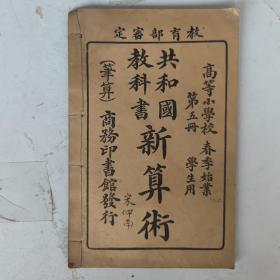 教育部審定
高等小學校 春季始業
第五冊 學生用
共和國
教科書
新算術
(筆算)
商務印書館發行